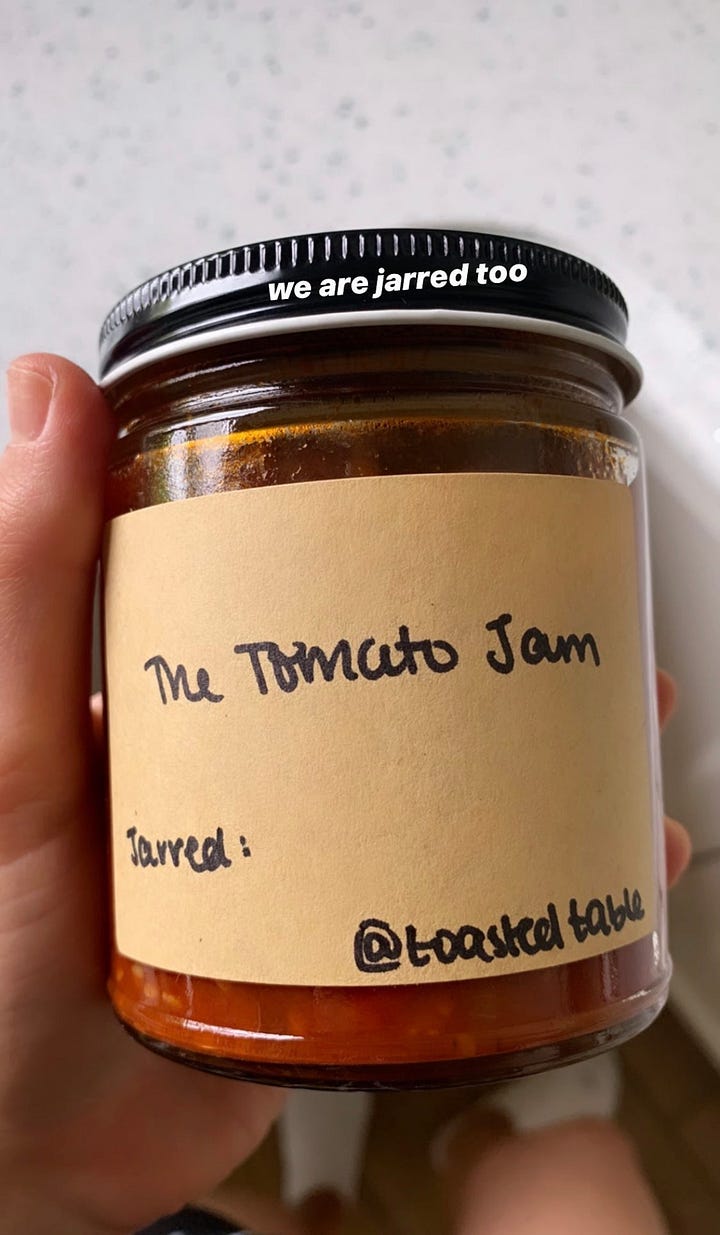 we are jarred too
The Tomato Jam
Jarred:
@toasted table